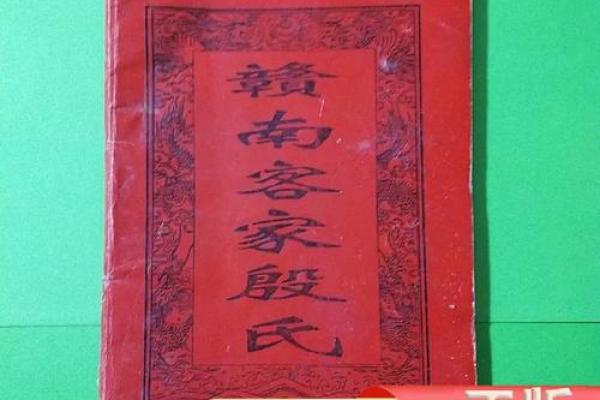 赣南客家殷氏